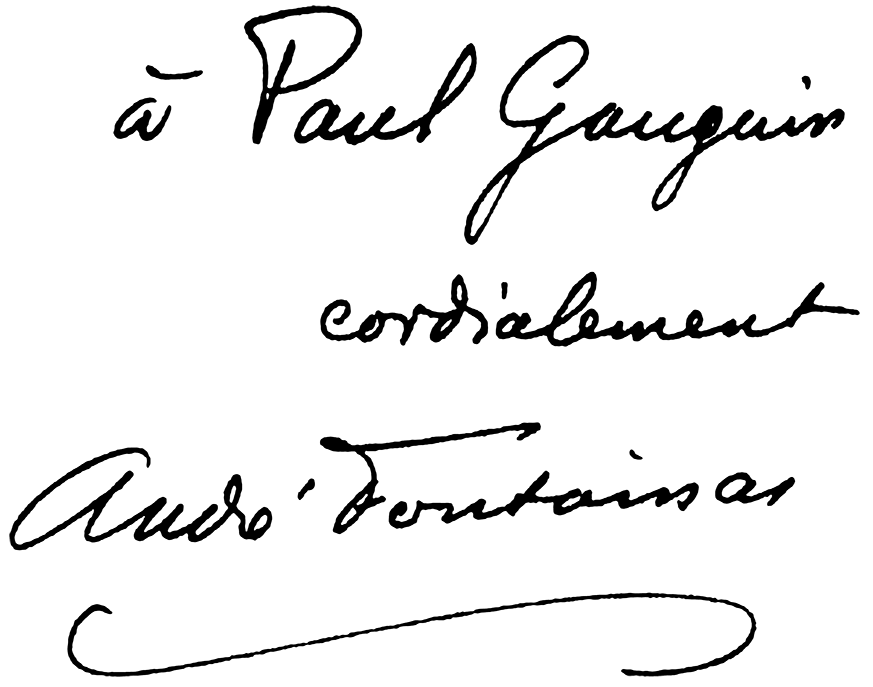 à Paul Gauguin
cordialement
André Fontainas